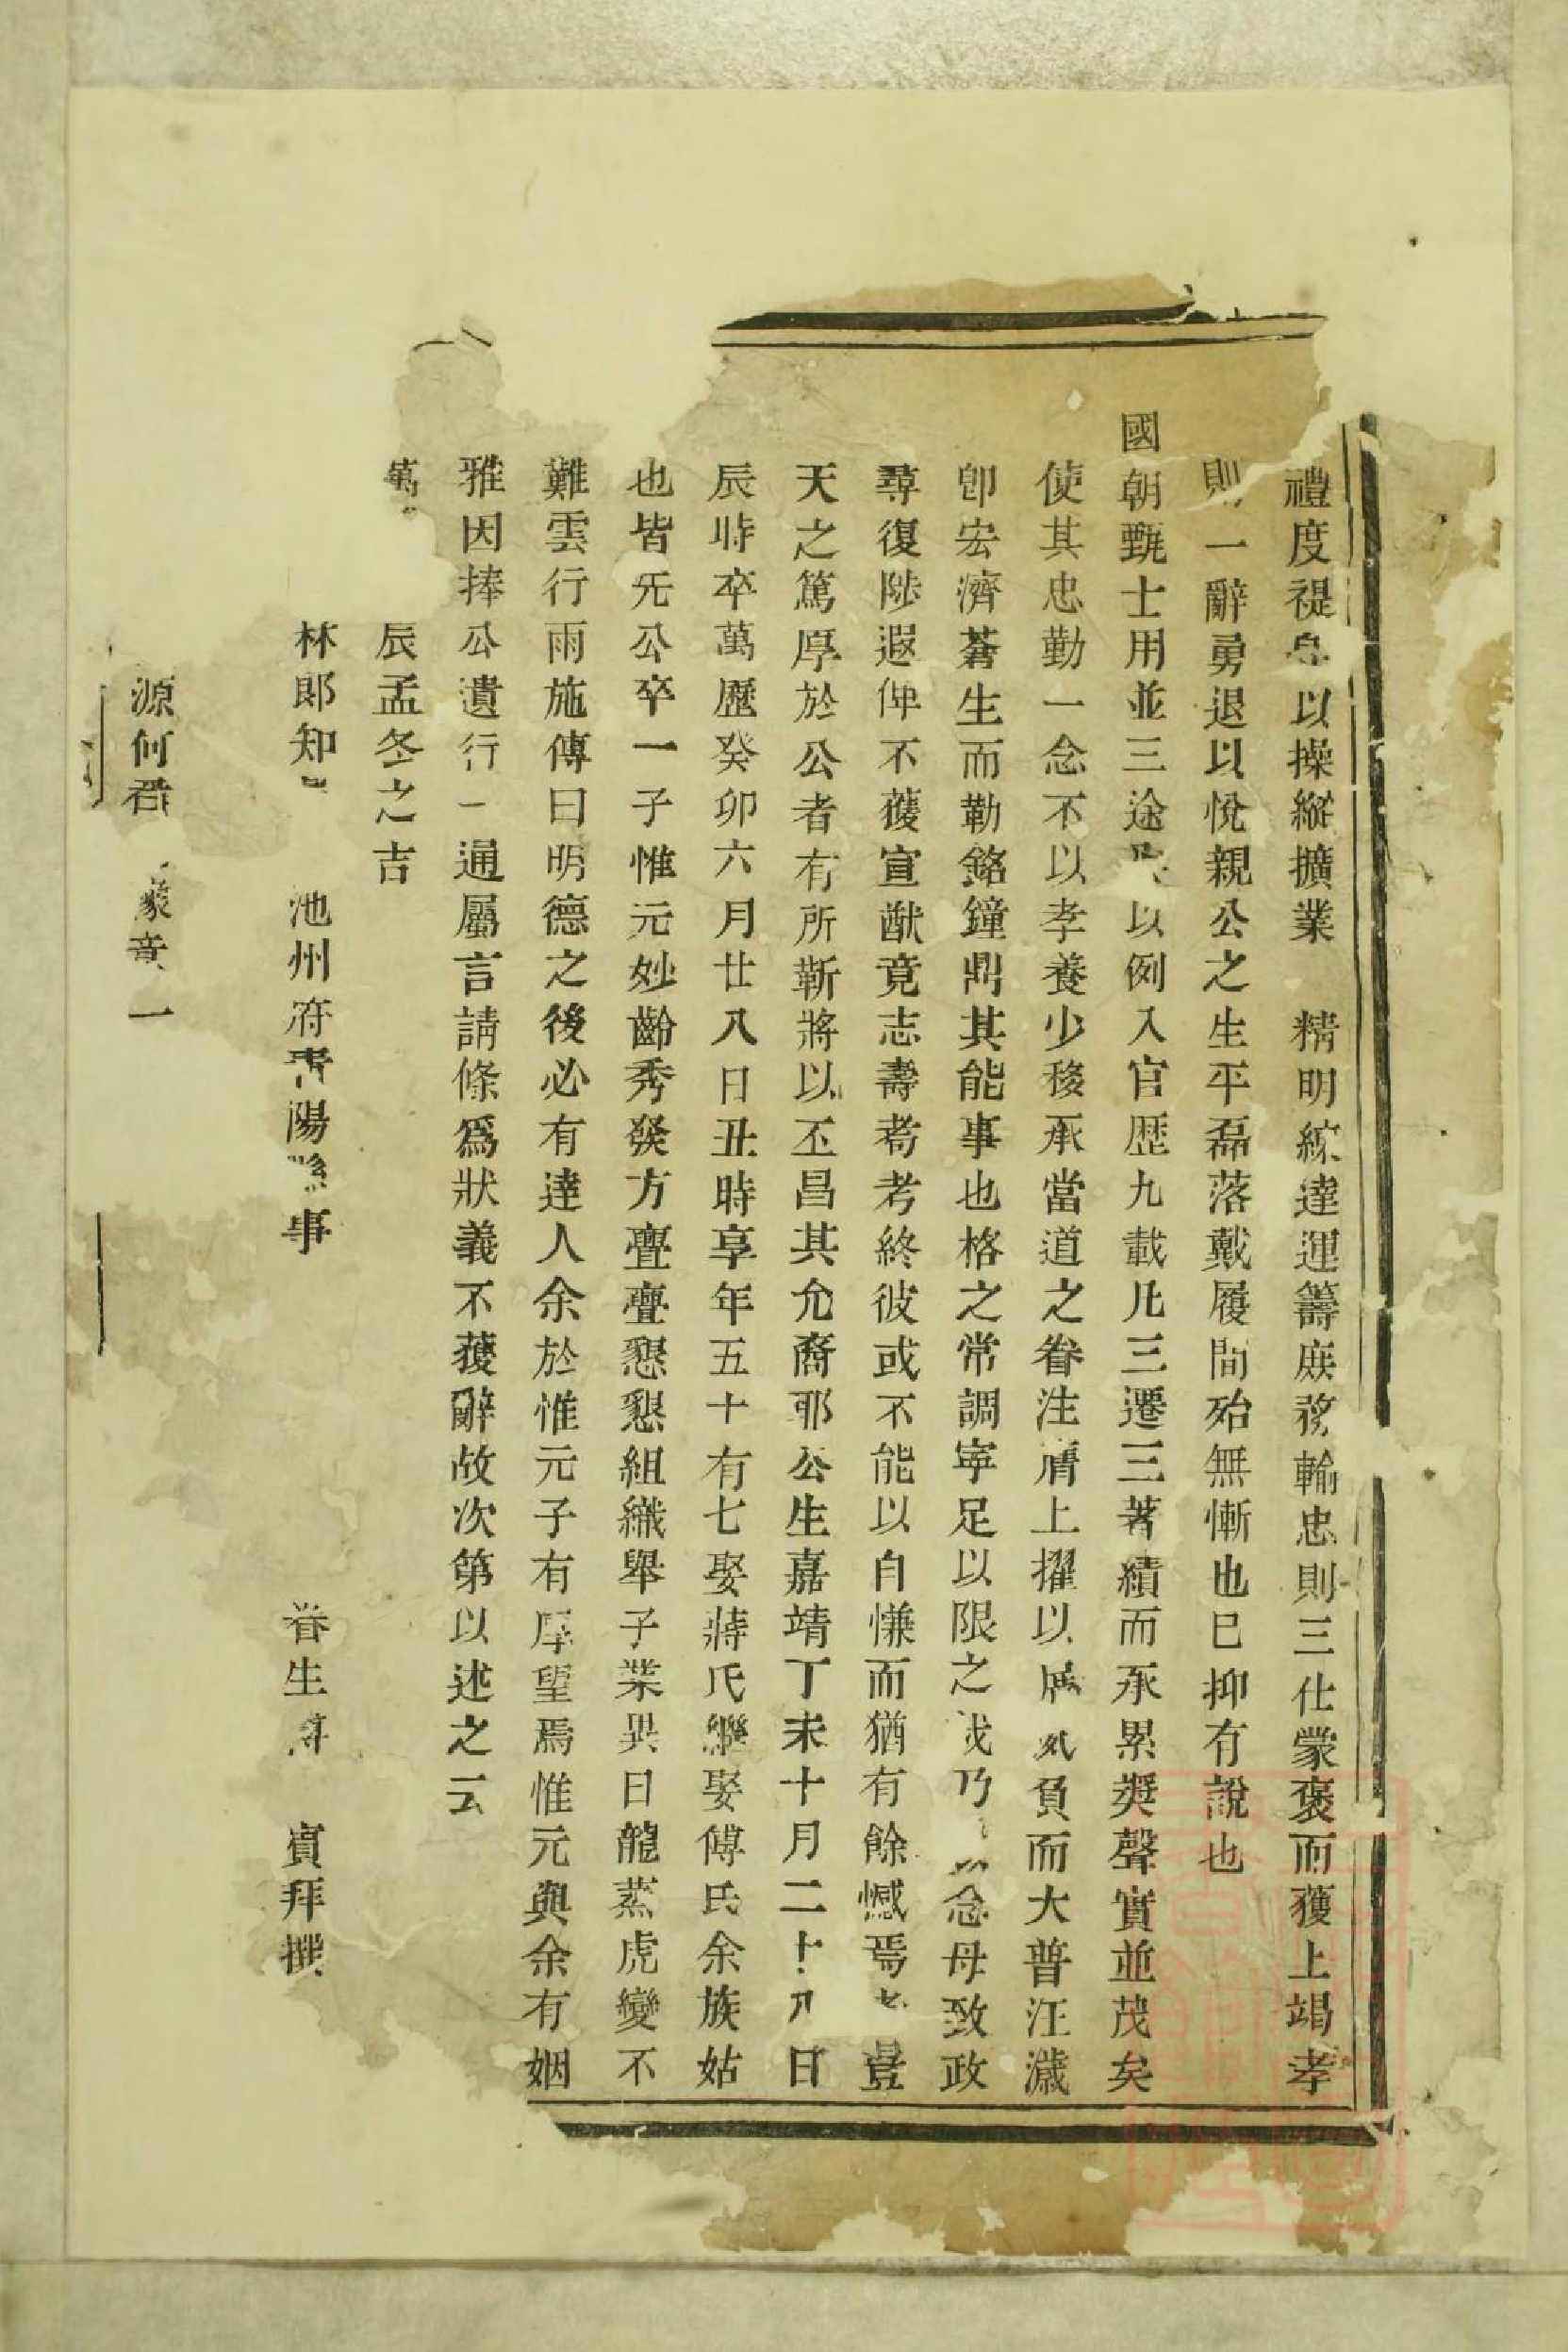 禮度禔身以操縱擴業精明綜達運籌庶務輸忠則三仕蒙褒而獲上竭孝
則一辭勇退以悅親公之生平磊落戴履間殆無慚也已抑有說也
國朝甄士用並三途以例入官歷九載凡三遷三著績而承累奬聲實並茂矣
使其忠勤一念不以孝養少移承當道之眷注膺上擢以展負而大普汪濊
卽宏濟蒼生而勒銘鐘鼎其能事也格之常調寧足以限之哉乃念母致政
尋復陟遐俾不獲宣猷竟志壽耇考終彼或不能以自慊而猶有餘憾焉豈
天之篤厚於公者有所靳將以丕昌其允裔耶公生嘉靖丁未十月二十八日
辰時卒萬歷癸卯六月廿八日丑時享年五十有七娶蔣氏繼娶傅氏余族姑
也皆先公卒一子惟元妙齡秀發方亹亹懇懇組織舉子業異日龍蒸虎變不
難雲行雨施傳曰明德之後必有達人余於惟元子有厚望焉惟元與余有姻
雅因捧公遺行一通屬言請條爲狀義不獲辭故次第以述之云
萬
辰孟冬之吉
林郎知池州府靑陽縣事
眷生
賓拜撰
源何君
豫章一